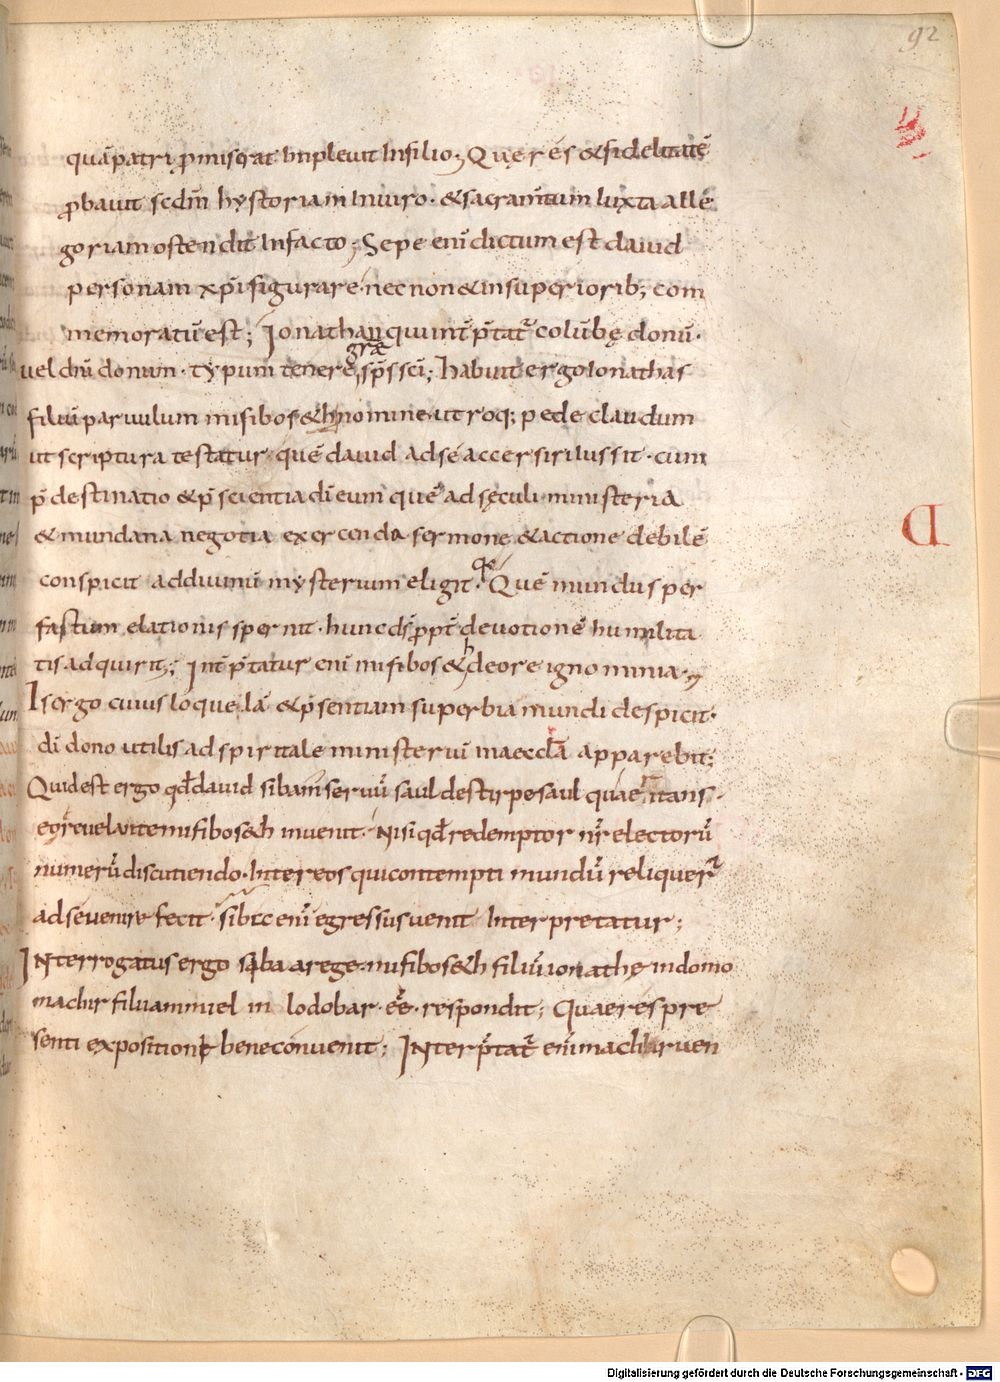 92
quā patri ꝓmiserat Impleuit Infilio; Que res & fidelitatē
ꝓbauit scdm̄ hystoriam Inuiro · & sacram̄tum Iuxta allē
goriam ostendit Infacto; Sepe enī dictum est dauid
personam xp̄i figurare · nec non & in superiorib; com
memoratū est; Ionathan qui int̄p̄tat̄ colūbę donū ·
uel dn̄i donum · typum tenere grā sp̄s sc̄i; Habuit ergo Ionathas
filiū paruulum misibos&h nomine · utroq; pede claudum
ut scriptura testatur · quē dauid adse accersiri Iussit · cum
p̄destinatio & p̄scientia dī eum quē ad sęculi ministeria
& mundana negotia exercenda sermone & actione debilē
conspicit ad diuinū mysterium eligit · Quē mundus per
fastum elationis spernit · hunc ds̄ ꝓpt̄ deuotionē humilita
tis adquirit; Int̄p̄tatur enī mifibos&h de ore ignominia ·
Is ergo cuius loquelā & p̄sentiam superbia mundi despicit ·
dī dono utilis ad spiritale ministeriū in aecclā apparebit;
Quid est ergo qd̄ dauid sibam seruū saul de stirpe saul quaeritans ·
egr̄e uel arte mifibos&h inuenit · Nisi qd̄ redemptor nr̄ electorū
numerū discutiendo · Inter eos qui contempti mundū reliquer̄
ad se uenire fecit · sibac enī egressus uenit Interpretatur;
INterrogatus ergo saba arege · mifibos&h filiū ionathę indomo
machir filii ammiel in lodobar · eē · respondit; Quae res pre
senti expositioni bene conuenit; INterp̄tat̄ enī machir uen
D
Digitalisierung gefördert durch die Deutsche Forschungsgemeinschaft - DFG